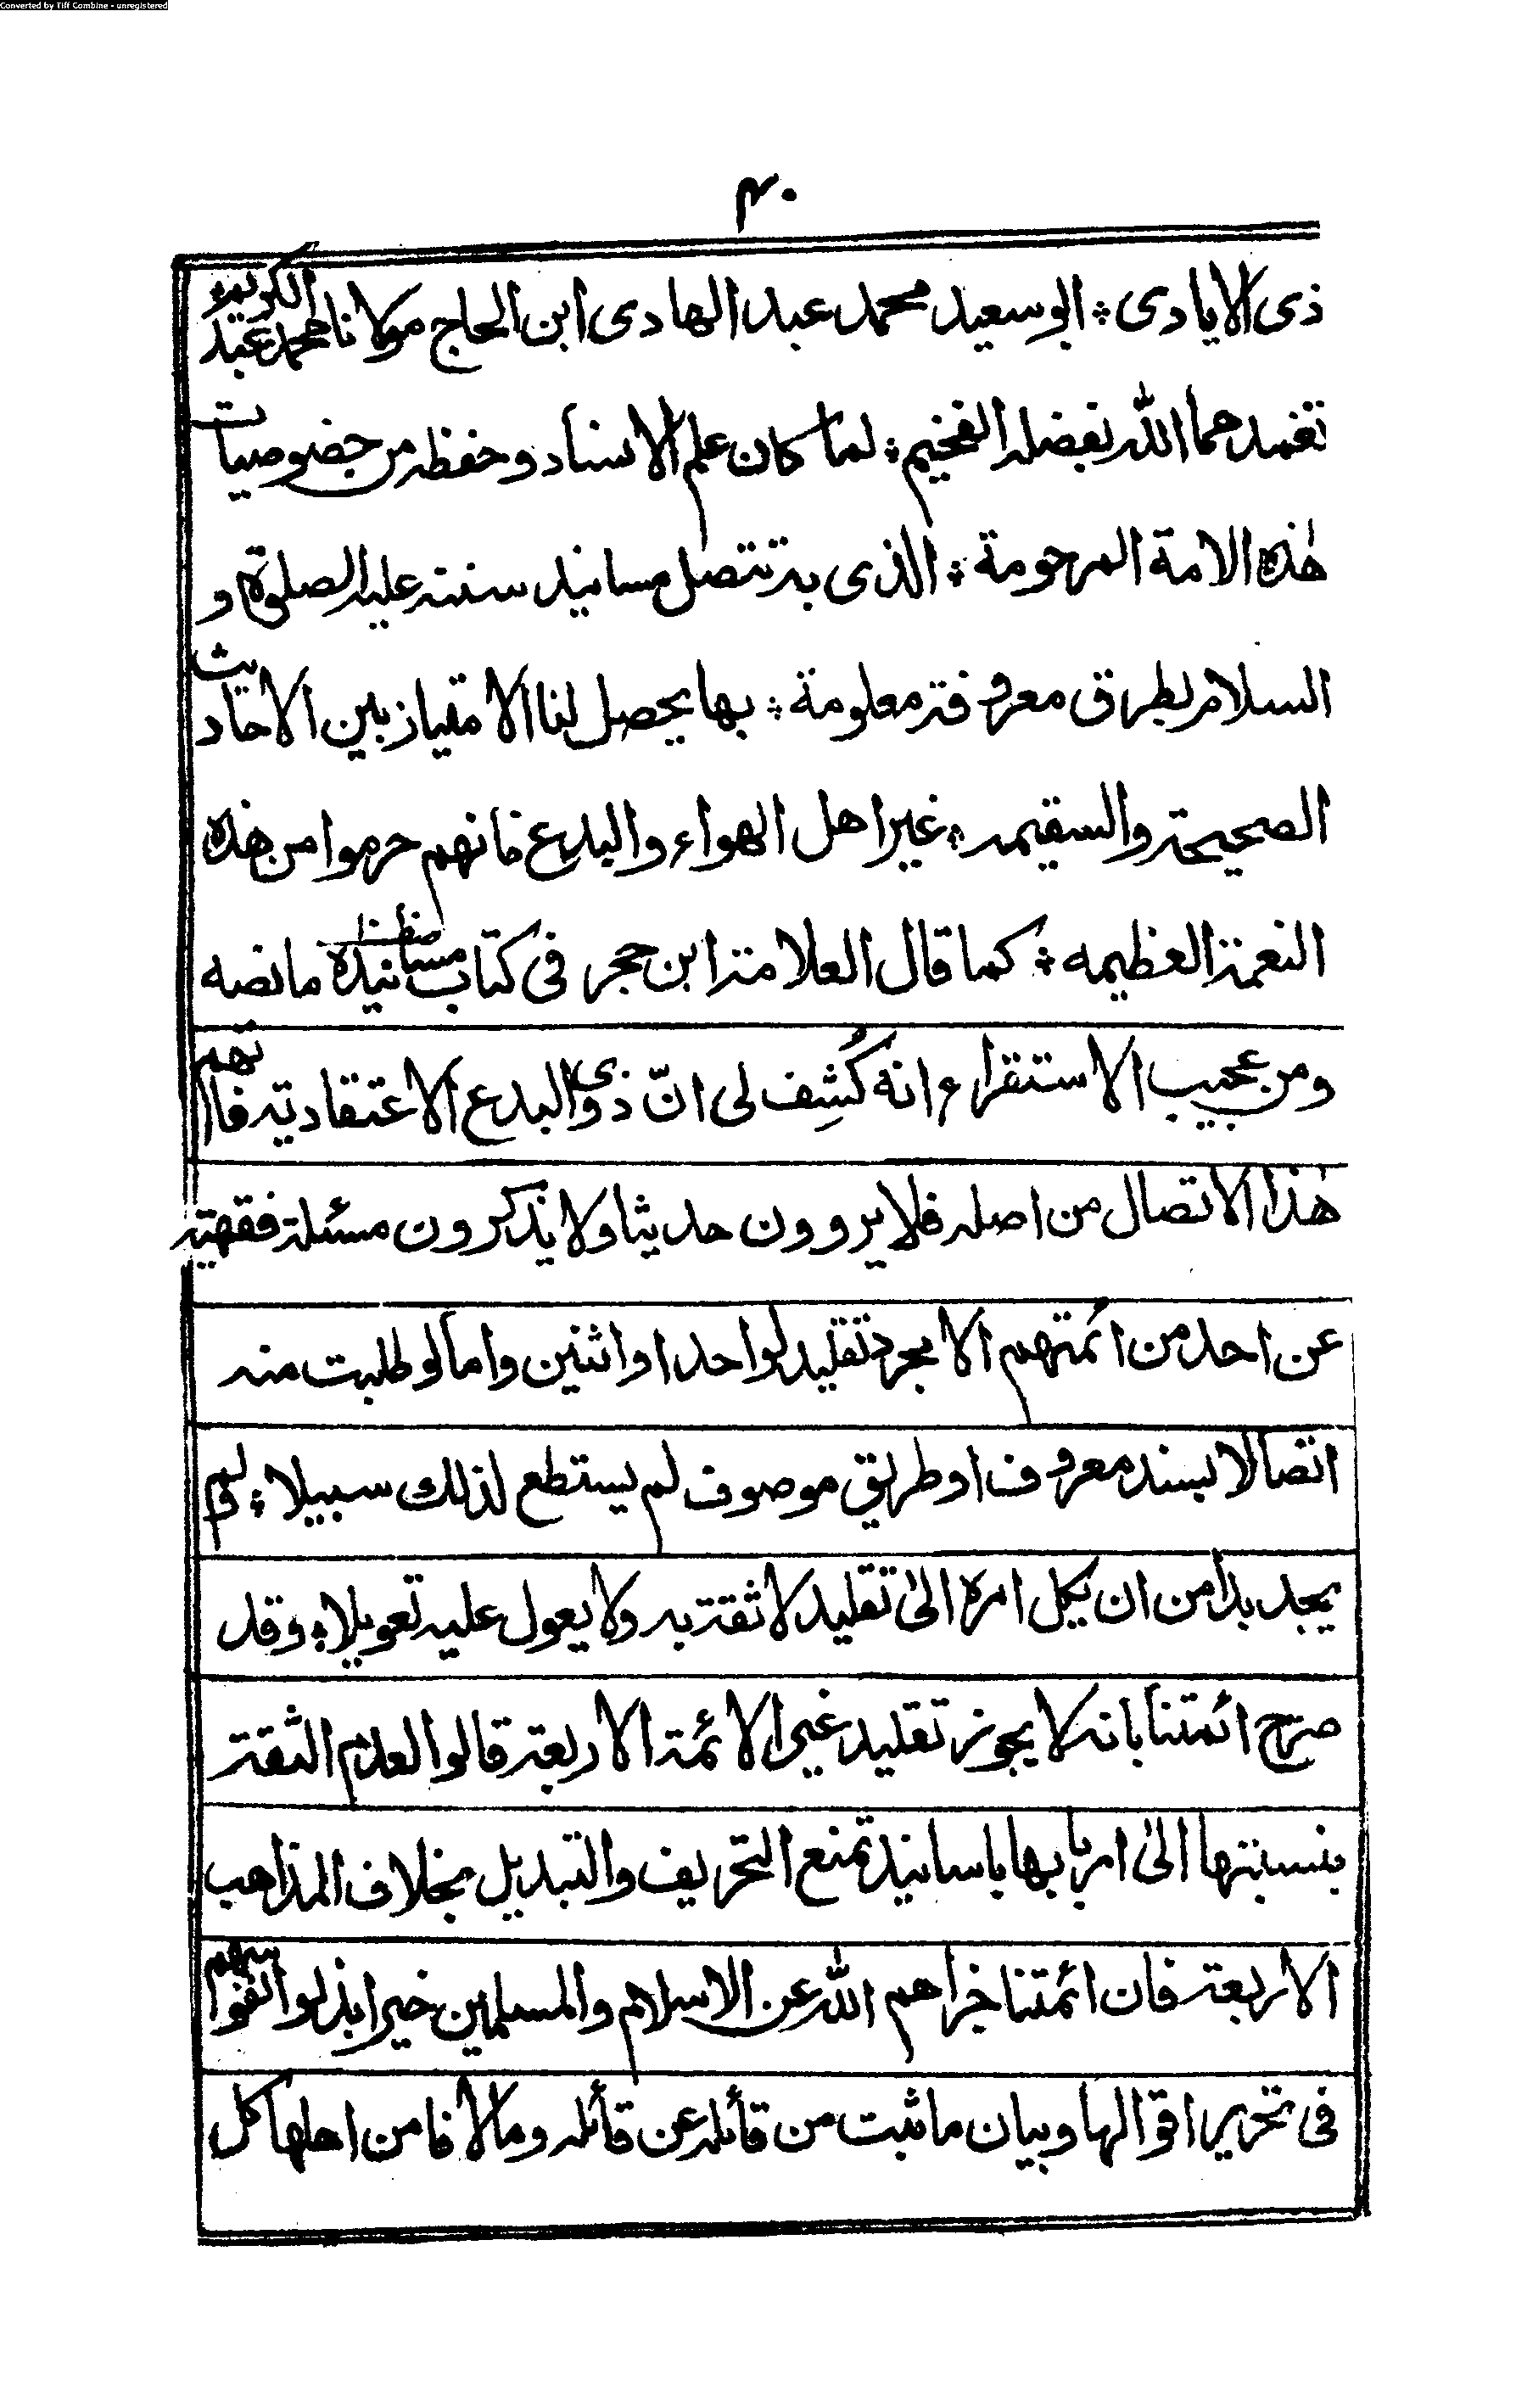 Converted by Tiff Combine - unregistered
۴۰
ذی الایادی ؞ ابو سعید محمد عبد الهادی ابن الحاج مولانا محمد عبد الکریم
تغمدهما الله بفضله الفخیم ؞ لما کان علم الاسناد وحفظه من خصوصیات
هٰذه الامة المرحومة ؞ الذی به تتصل مسانید سننه علیه الصلوة و
السلام بطرق معروفة معلومة ؞ بها یحصل لنا الامتیاز بین الاحادیث
الصحیحة والسقیمه ؞ غیر اهل الهواء والبدع فانهم حرموا من هذه
النعمة العظیمه ؞ کما قال العلامة ابن حجر فی کتاب مسانیده مانصه
ومن عجیب الاستقراء انه کُشِف لی انّ ذوی البدع الاعتقادیة فاتهم
هٰذا الاتصال من اصله فلا یروون حدیثا ولا یذکرون مسئلة فقهیة
عن احد من ائمتهم الا مجرد تقلید لواحد او اثنین واما لو طلبت منه
اتصالا بسند معروف او طریق موصوف لم یستطع لذلك سبیلا ؞ ولم
یجد بدا من ان یکل امره الیٰ تقلید لا ثقة به ولا یعول علیه تعویلا ؞ وقد
صرح ائمتنا بانه لا یجوز تقلید غیر الائمة الاربعة قالوا لعدم الثقة
بنسبتها الیٰ اربابها باسانید تمنع التحریف والتبدیل بخلاف المذاهب
الاربعة فان ائمتنا جزاهم الله عن الاسلام والمسلمین خیرا بذلوا انفسهم
فی تحریر اقوالها وبیان ما ثبت من قائله عن قائله وما لا فامن اهلها کل